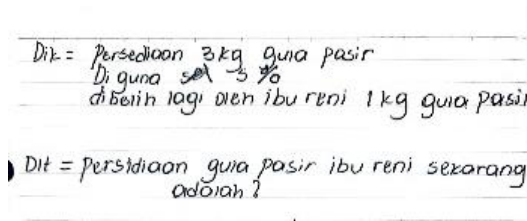 Dik = Persediaan 3 kg gula pasir
Di guna 5 %
dibelih lagi oleh ibu reni 1 kg gula pasir
Dit = persidiaan gula pasir ibu reni sekarang
adalah ?